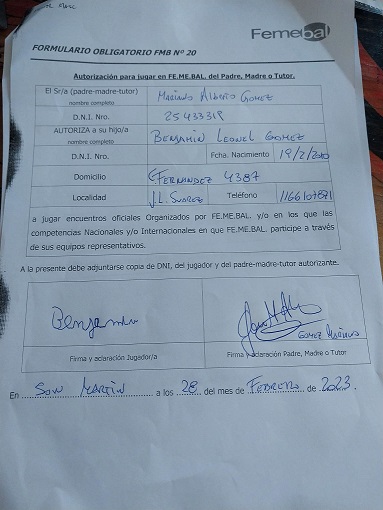 Femebal
FORMULARIO OBLIGATORIO FMB Nº 20
Autorización para jugar en FE.ME.BAL. del Padre, Madre o Tutor.
El Sr/a (padre-madre-tutor) Mariano Alberto Gomez
nombre completo
D.N.I. Nro. 25433319
AUTORIZA a su hijo/a Benjamin Leonel Gomez
nombre completo
D.N.I. Nro. Fcha. Nacimiento 19/2/2010
Domicilio Fernandez 4387
Localidad J.L. Suarez Teléfono
a jugar encuentros oficiales Organizados por FE.ME.BAL. y/o en los que las
competencias Nacionales y/o Internacionales en que FE.ME.BAL. participe a través
de sus equipos representativos.
A la presente debe adjuntarse copia de DNI, del jugador y del padre-madre-tutor autorizante.
Benjamin
Gomez Mariano
Firma y aclaración Jugador/a Firma y aclaración Padre, Madre o Tutor
En San Martin a los 28 del mes de Febrero de 2023.